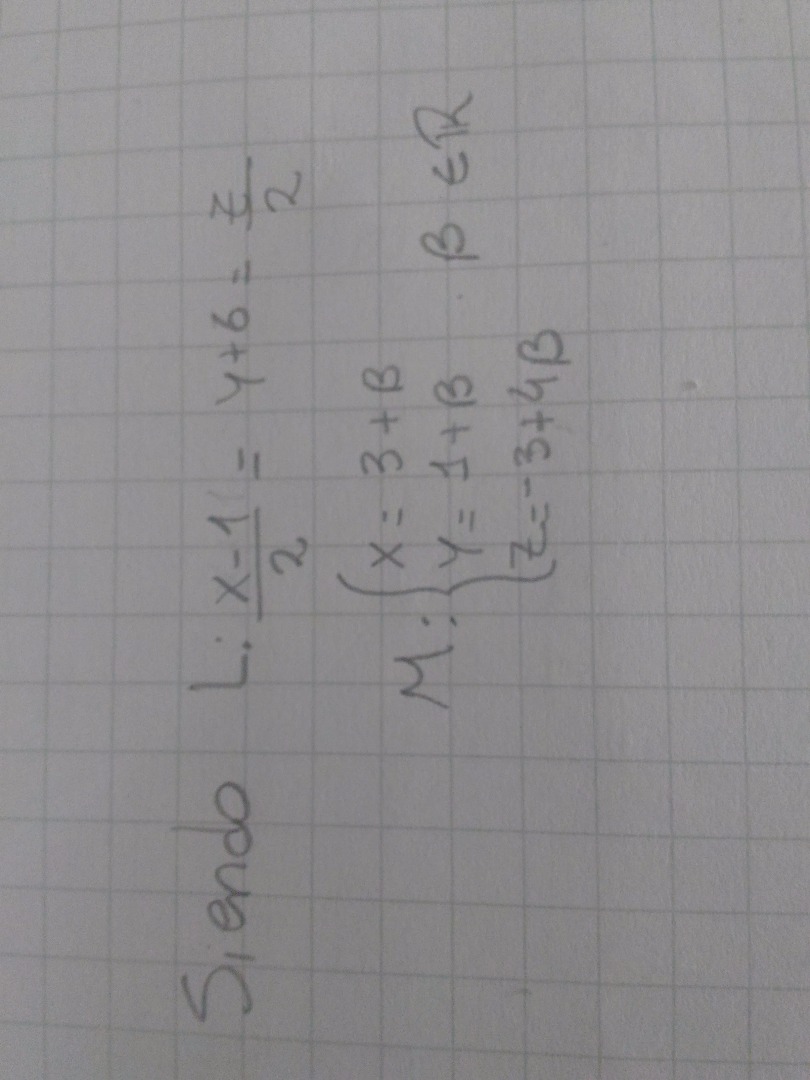 Siendo L: x-1/2 = y+6 = z/2
M: { x = 3+β
y = 1+β β ∈ ℝ
z=-3+4β